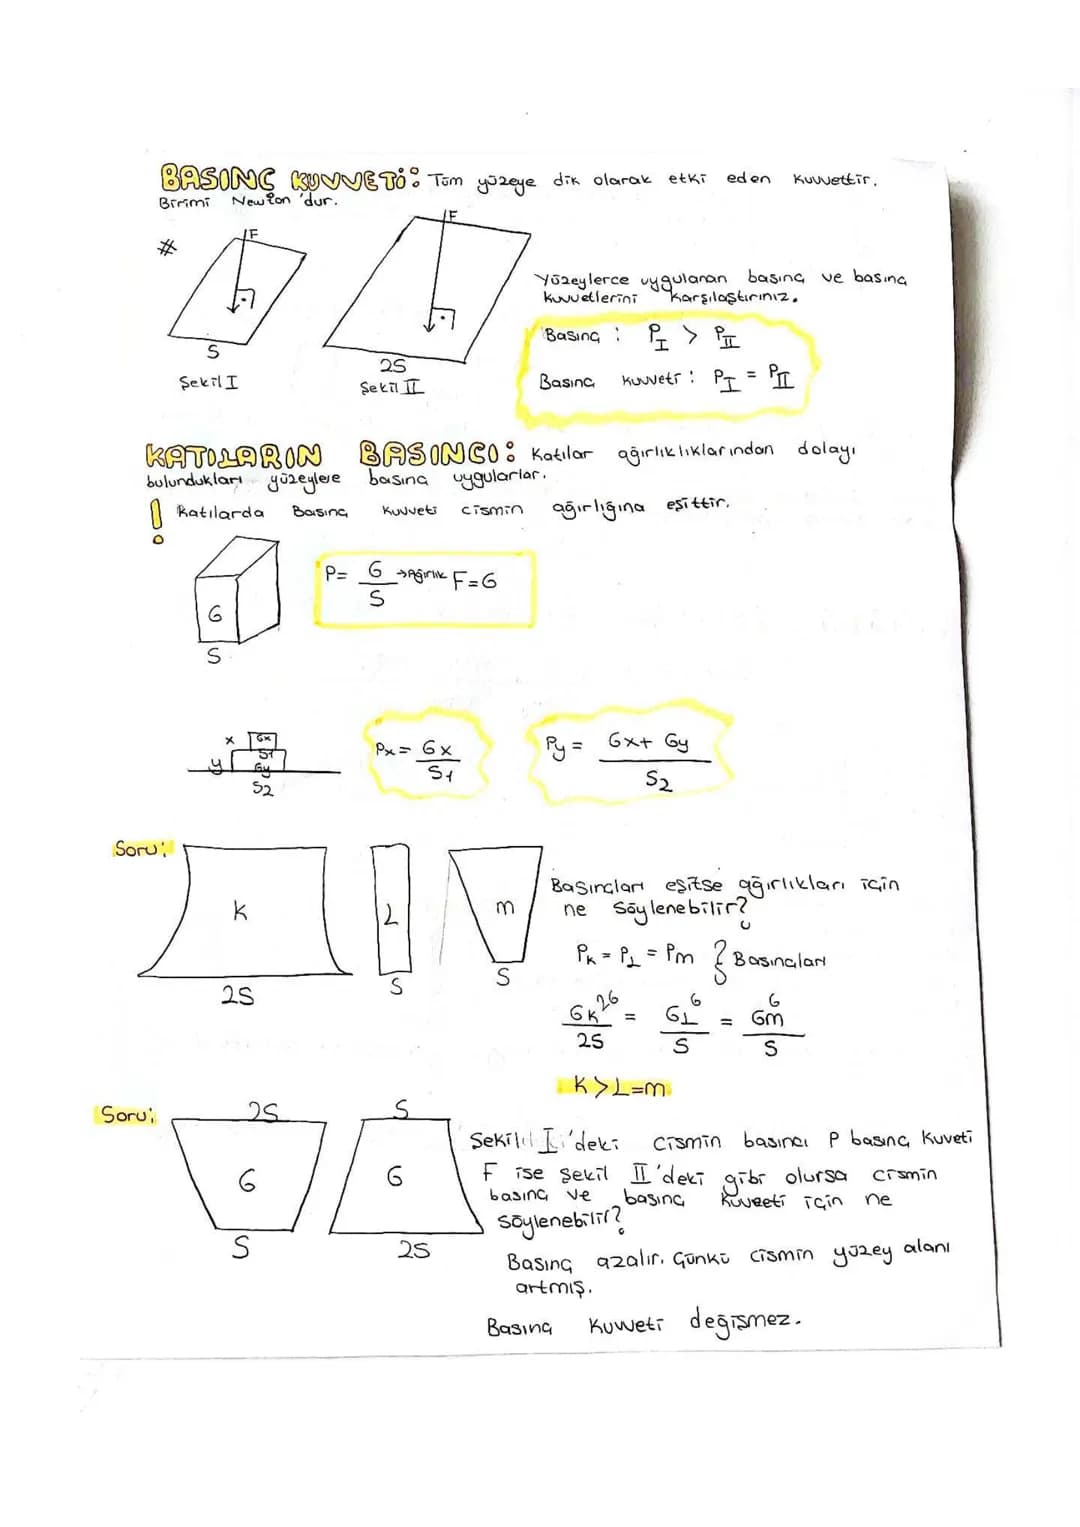 BASINÇ KUVVETİ: Tüm yüzeye dik olarak etki eden kuvvettir.
Birimi Newton'dur.
#
F
F
S
Şekil I
2S
Şekil II
Yüzeylerce uygulanan basınç ve basınç
kuvvetlerini karşılaştırınız.
Basınç : PI > PII
Basınç kuvveti : PI = PII
KATILARIN BASINCI: Katılar ağırlıklıklarından dolayı
bulundukları yüzeylere basınç uygularlar.
! Katılarda Basınç kuvveti cismin ağırlığına eşittir.
G
S
P= G/S →Ağırlık F=G
x Gx
S1
y Gy
S2
Px= Gx/S1
Py= Gx+Gy/S2
Soru:
K
2S
L
S
m
S
Basınçları eşitse ağırlıkları için
ne söylenebilir?
PK = PL = Pm } Basınçları
GK 2G/2S = GL G/S = Gm G/S
K>L=m
Soru:
2S
G
S
S
G
2S
Şekil I'deki cismin basıncı P basınç kuveti
F ise şekil II'deki gibi olursa cismin
basınç ve basınç kuvveti için ne
söylenebilir?
Basınç azalır. Çünkü cismin yüzey alanı
artmış.
Basınç kuvveti değişmez.